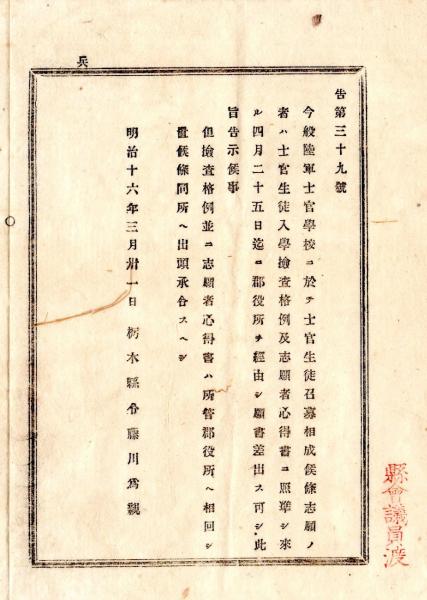 兵
告第三十九號
今般陸軍士官學校ニ於テ士官生徒召募相成候條志願ノ
者ハ士官生徒入學撿査格例及志願者心得書ニ照準シ來
ル四月二十五日迄ニ郡役所ヲ經由シ願書差出ス可シ此
旨告示候事
但撿査格例並ニ志願者心得書ハ所管郡役所ヘ相回シ
置候條同所ヘ出頭承合スヘシ
明治十六年三月卅一日 栃木縣令藤川爲親
縣會議員渡